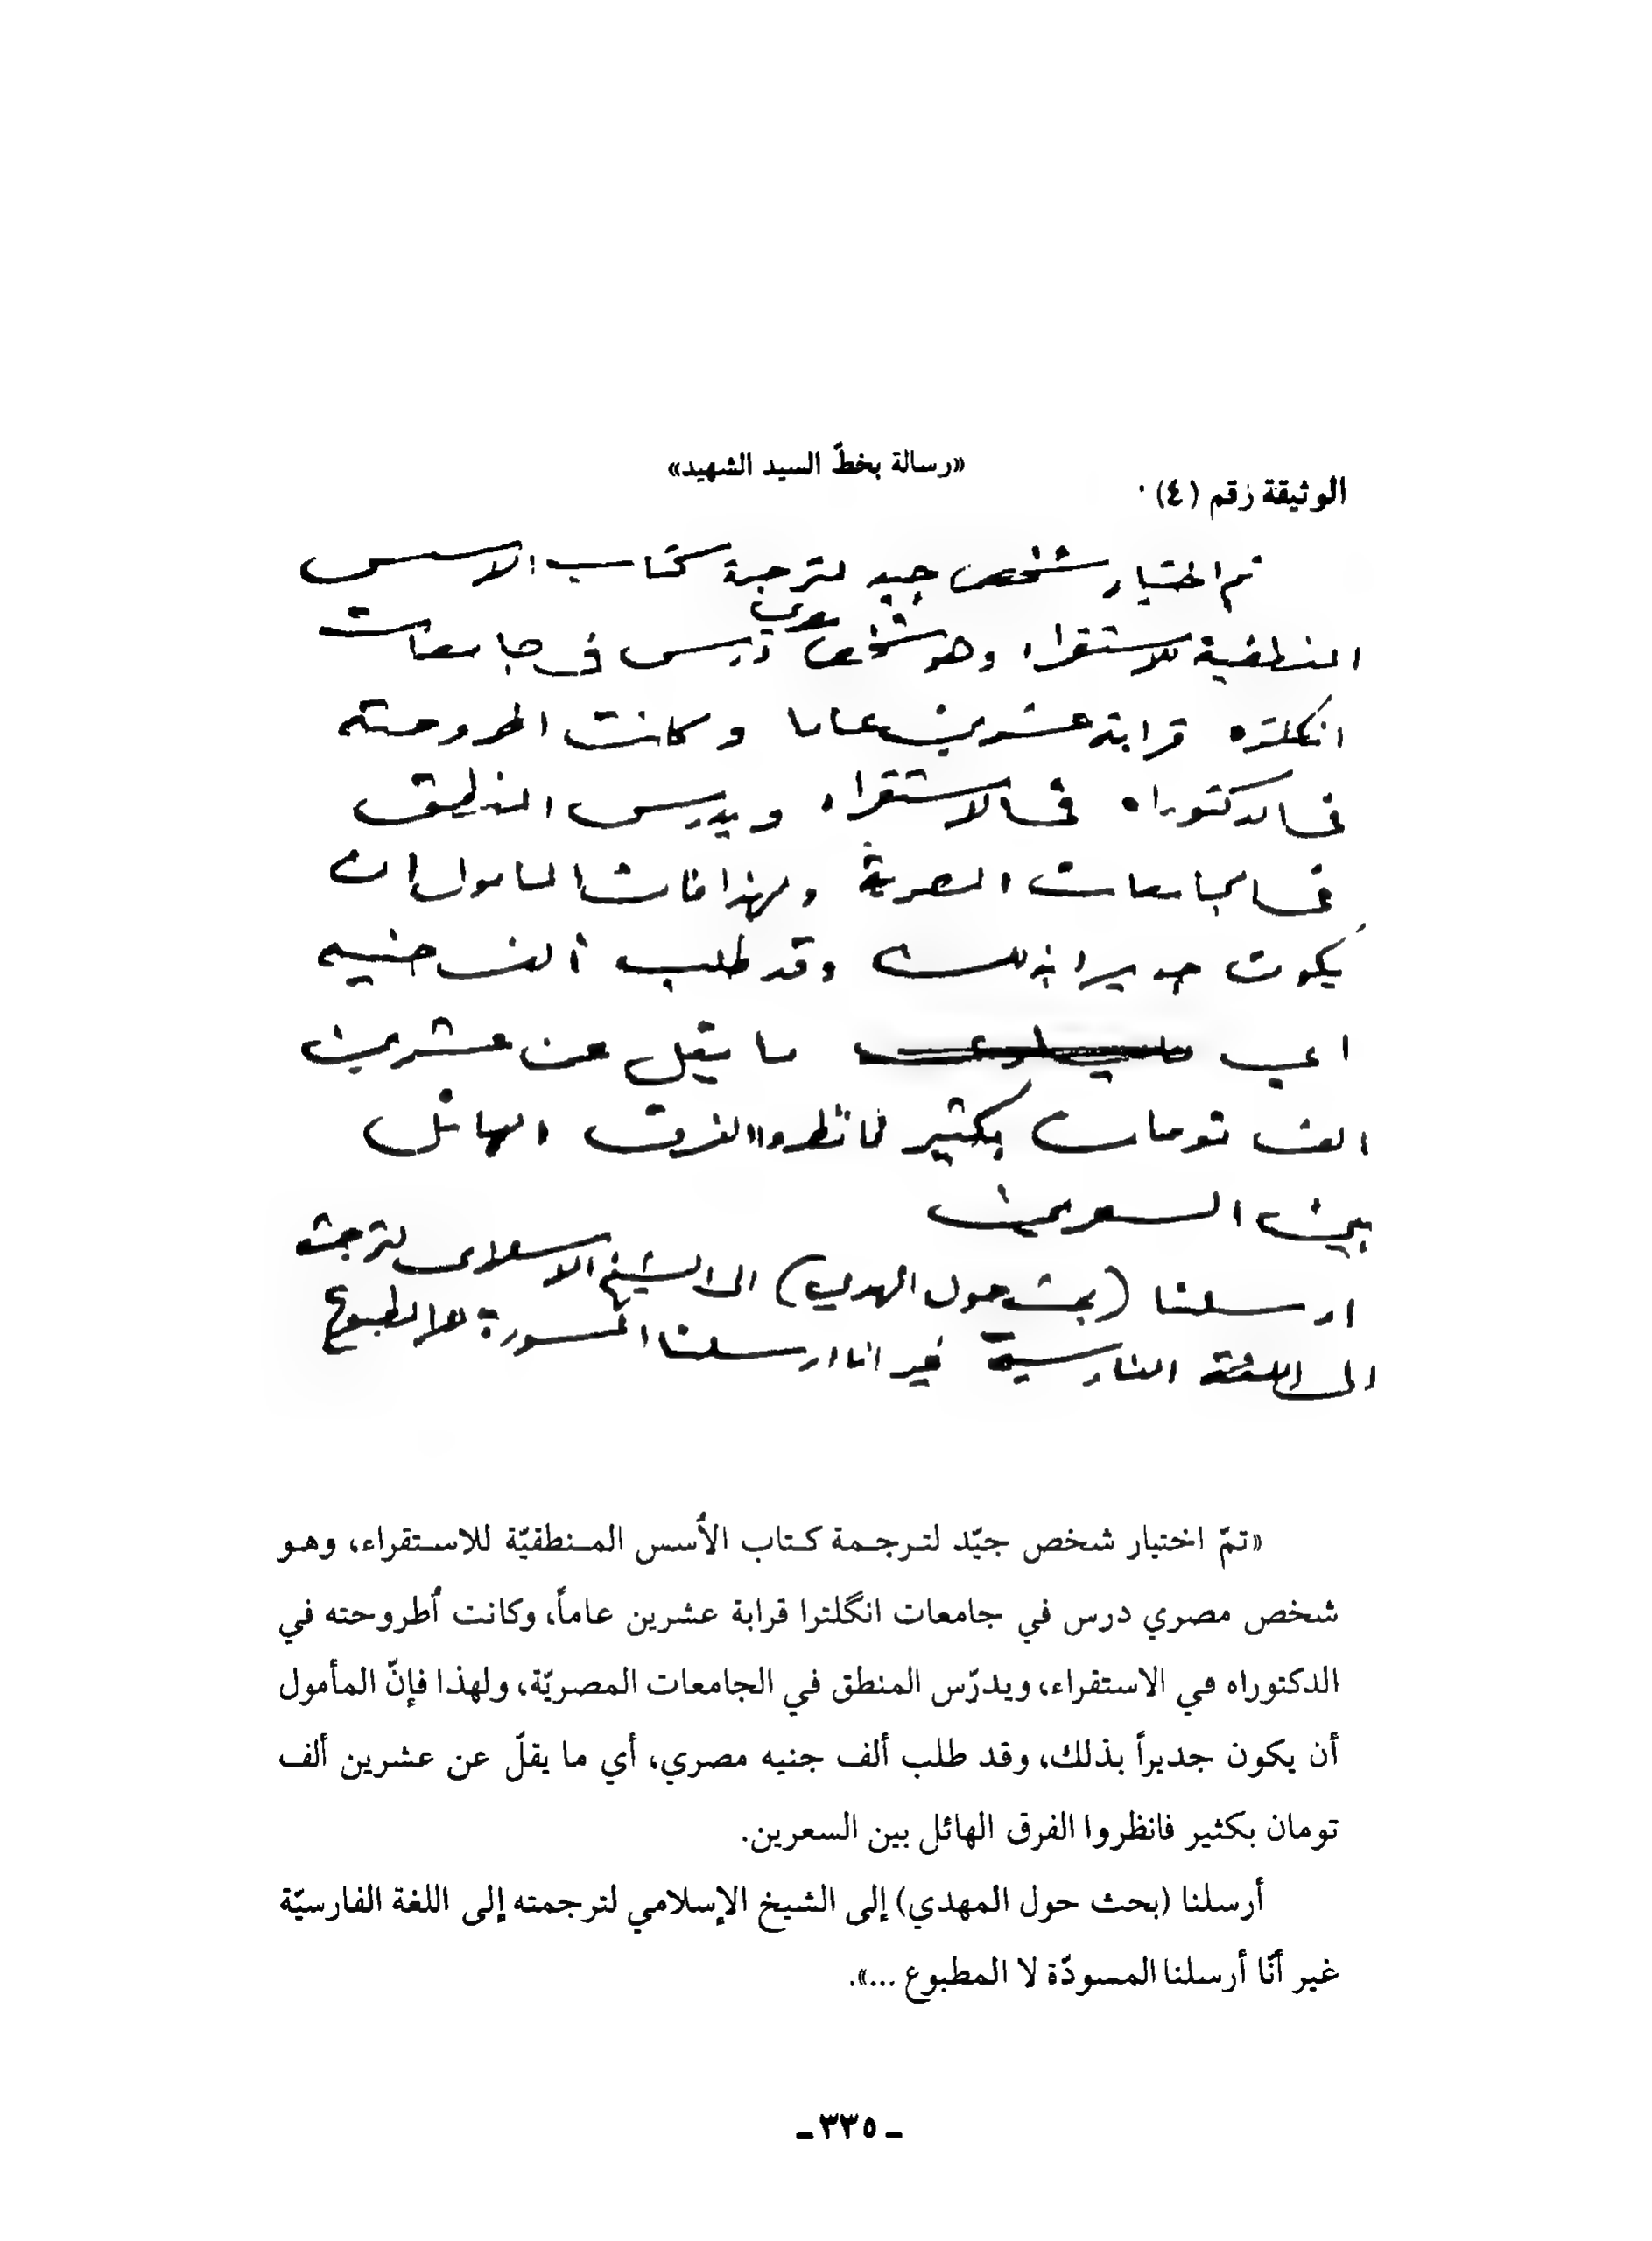 «رسالة بخطّ السيد الشهيد»
الوثيقة رقم (٤)
تم اختيار شخص جيد لترجمة كتاب الاسس
المنطقية للاستقراء وهو شخص مصري درس في جامعات
انكلتره قرابة عشرين عاما وكانت اطروحته
في الدكتوراه في الاستقراء ويدرس المنطق
في الجامعات المصرية ولهذا فان المامول ان
يكون جديرا بذلك وقد طلب ألف جنيه
اي ما يقل عن عشرين
الف تومان بكثير فانظروا الفرق الهائل
بين السعرين
ارسلنا (بحث حول المهدي) الى الشيخ الاسلامي لترجمته
الى اللغة الفارسية غير انا ارسلنا المسودة لا المطبوع
«تمّ اختيار شخص جيّد لترجمة كتاب الأسس المنطقيّة للاستقراء، وهو
شخص مصري درس في جامعات انگلترا قرابة عشرين عاماً، وكانت أُطروحته في
الدكتوراه في الاستقراء، ويدرّس المنطق في الجامعات المصريّة، ولهذا فإنّ المأمول
أن يكون جديراً بذلك، وقد طلب ألف جنيه مصري، أي ما يقلّ عن عشرين ألف
تومان بكثير فانظروا الفرق الهائل بين السعرين.
أرسلنا (بحث حول المهدي) إلى الشيخ الإسلامي لترجمته إلى اللغة الفارسيّة
غير أنّا أرسلنا المسودّة لا المطبوع ...».
ـ ٣٣٥ ـ